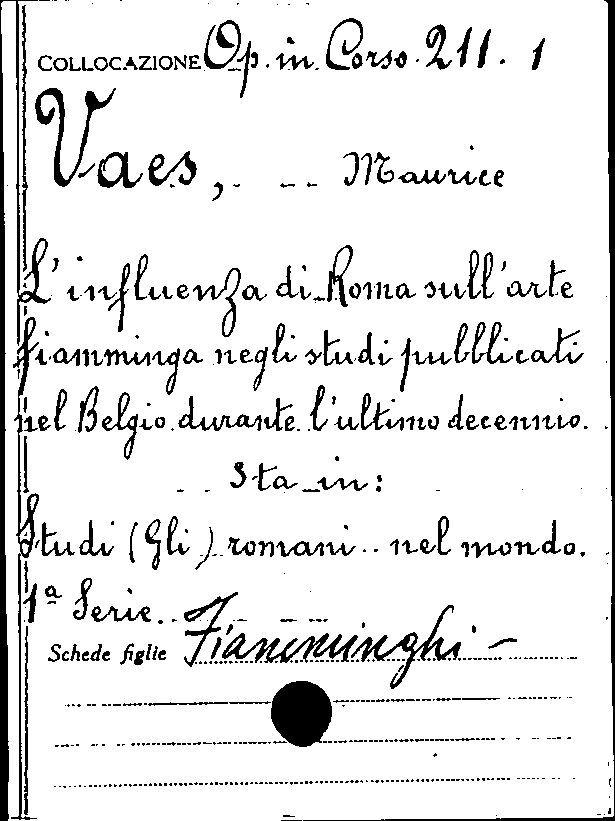 COLLOCAZIONE Op. in Corso. 211. 1
Vaes, Maurice
L'influenza di Roma sull'arte
fiamminga negli studi pubblicati
nel Belgio durante l'ultimo decennio.
Sta in:
Studi (Gli) romani nel mondo.
1ª Serie.
Schede figlie Fiamminghi -